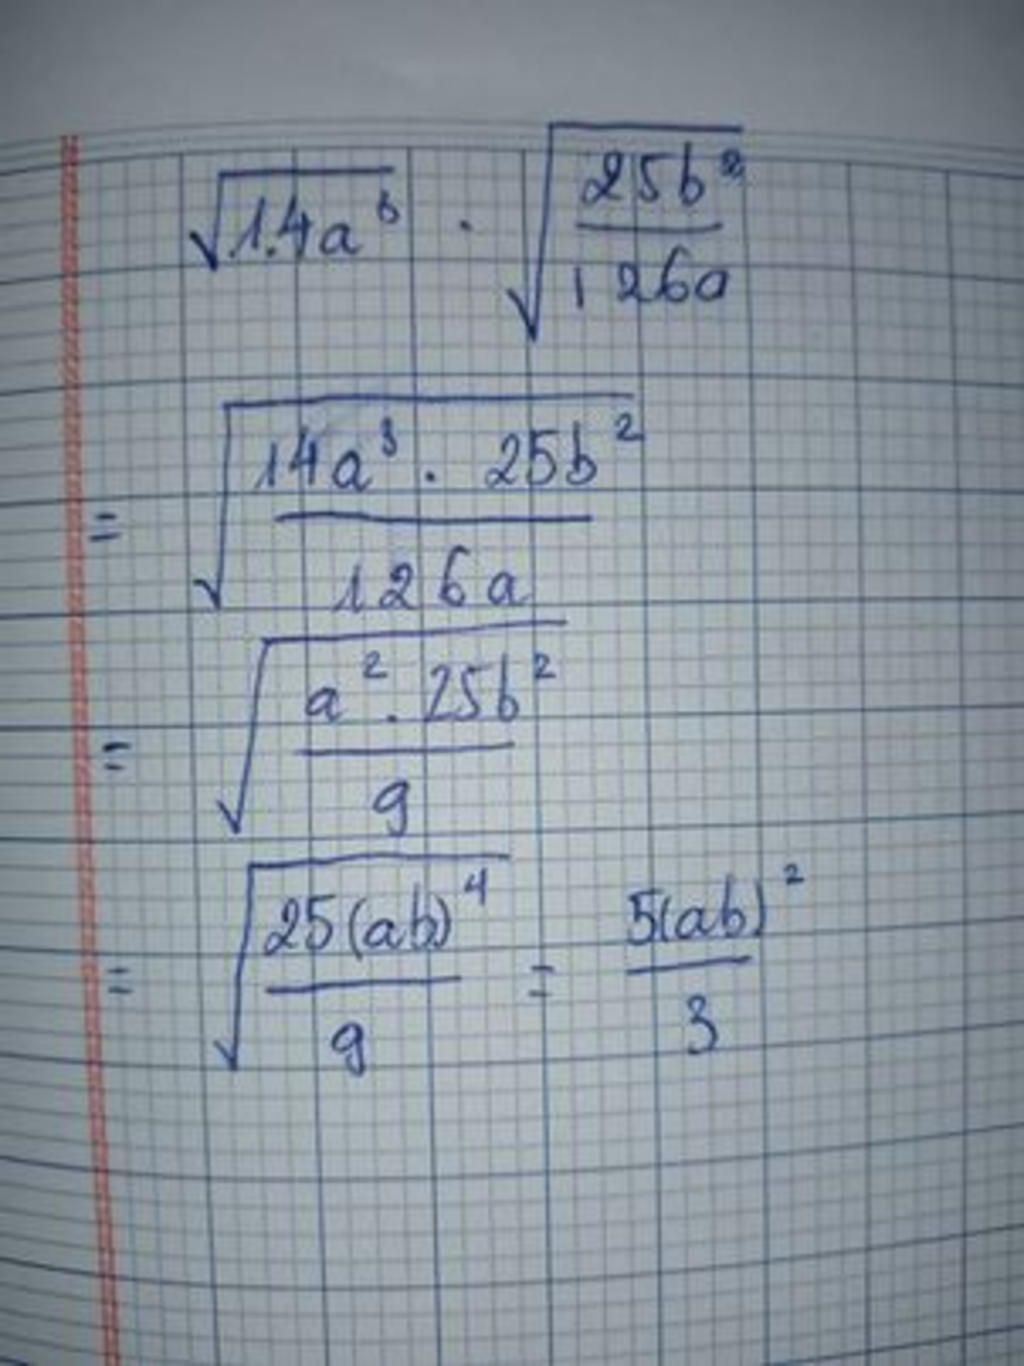 √(14a³) · √(25b²/126a)
= √((14a³ . 25b²)/(126a))
= √((a² . 25b²)/9)
= √(25(ab)⁴/9) = 5(ab)²/3